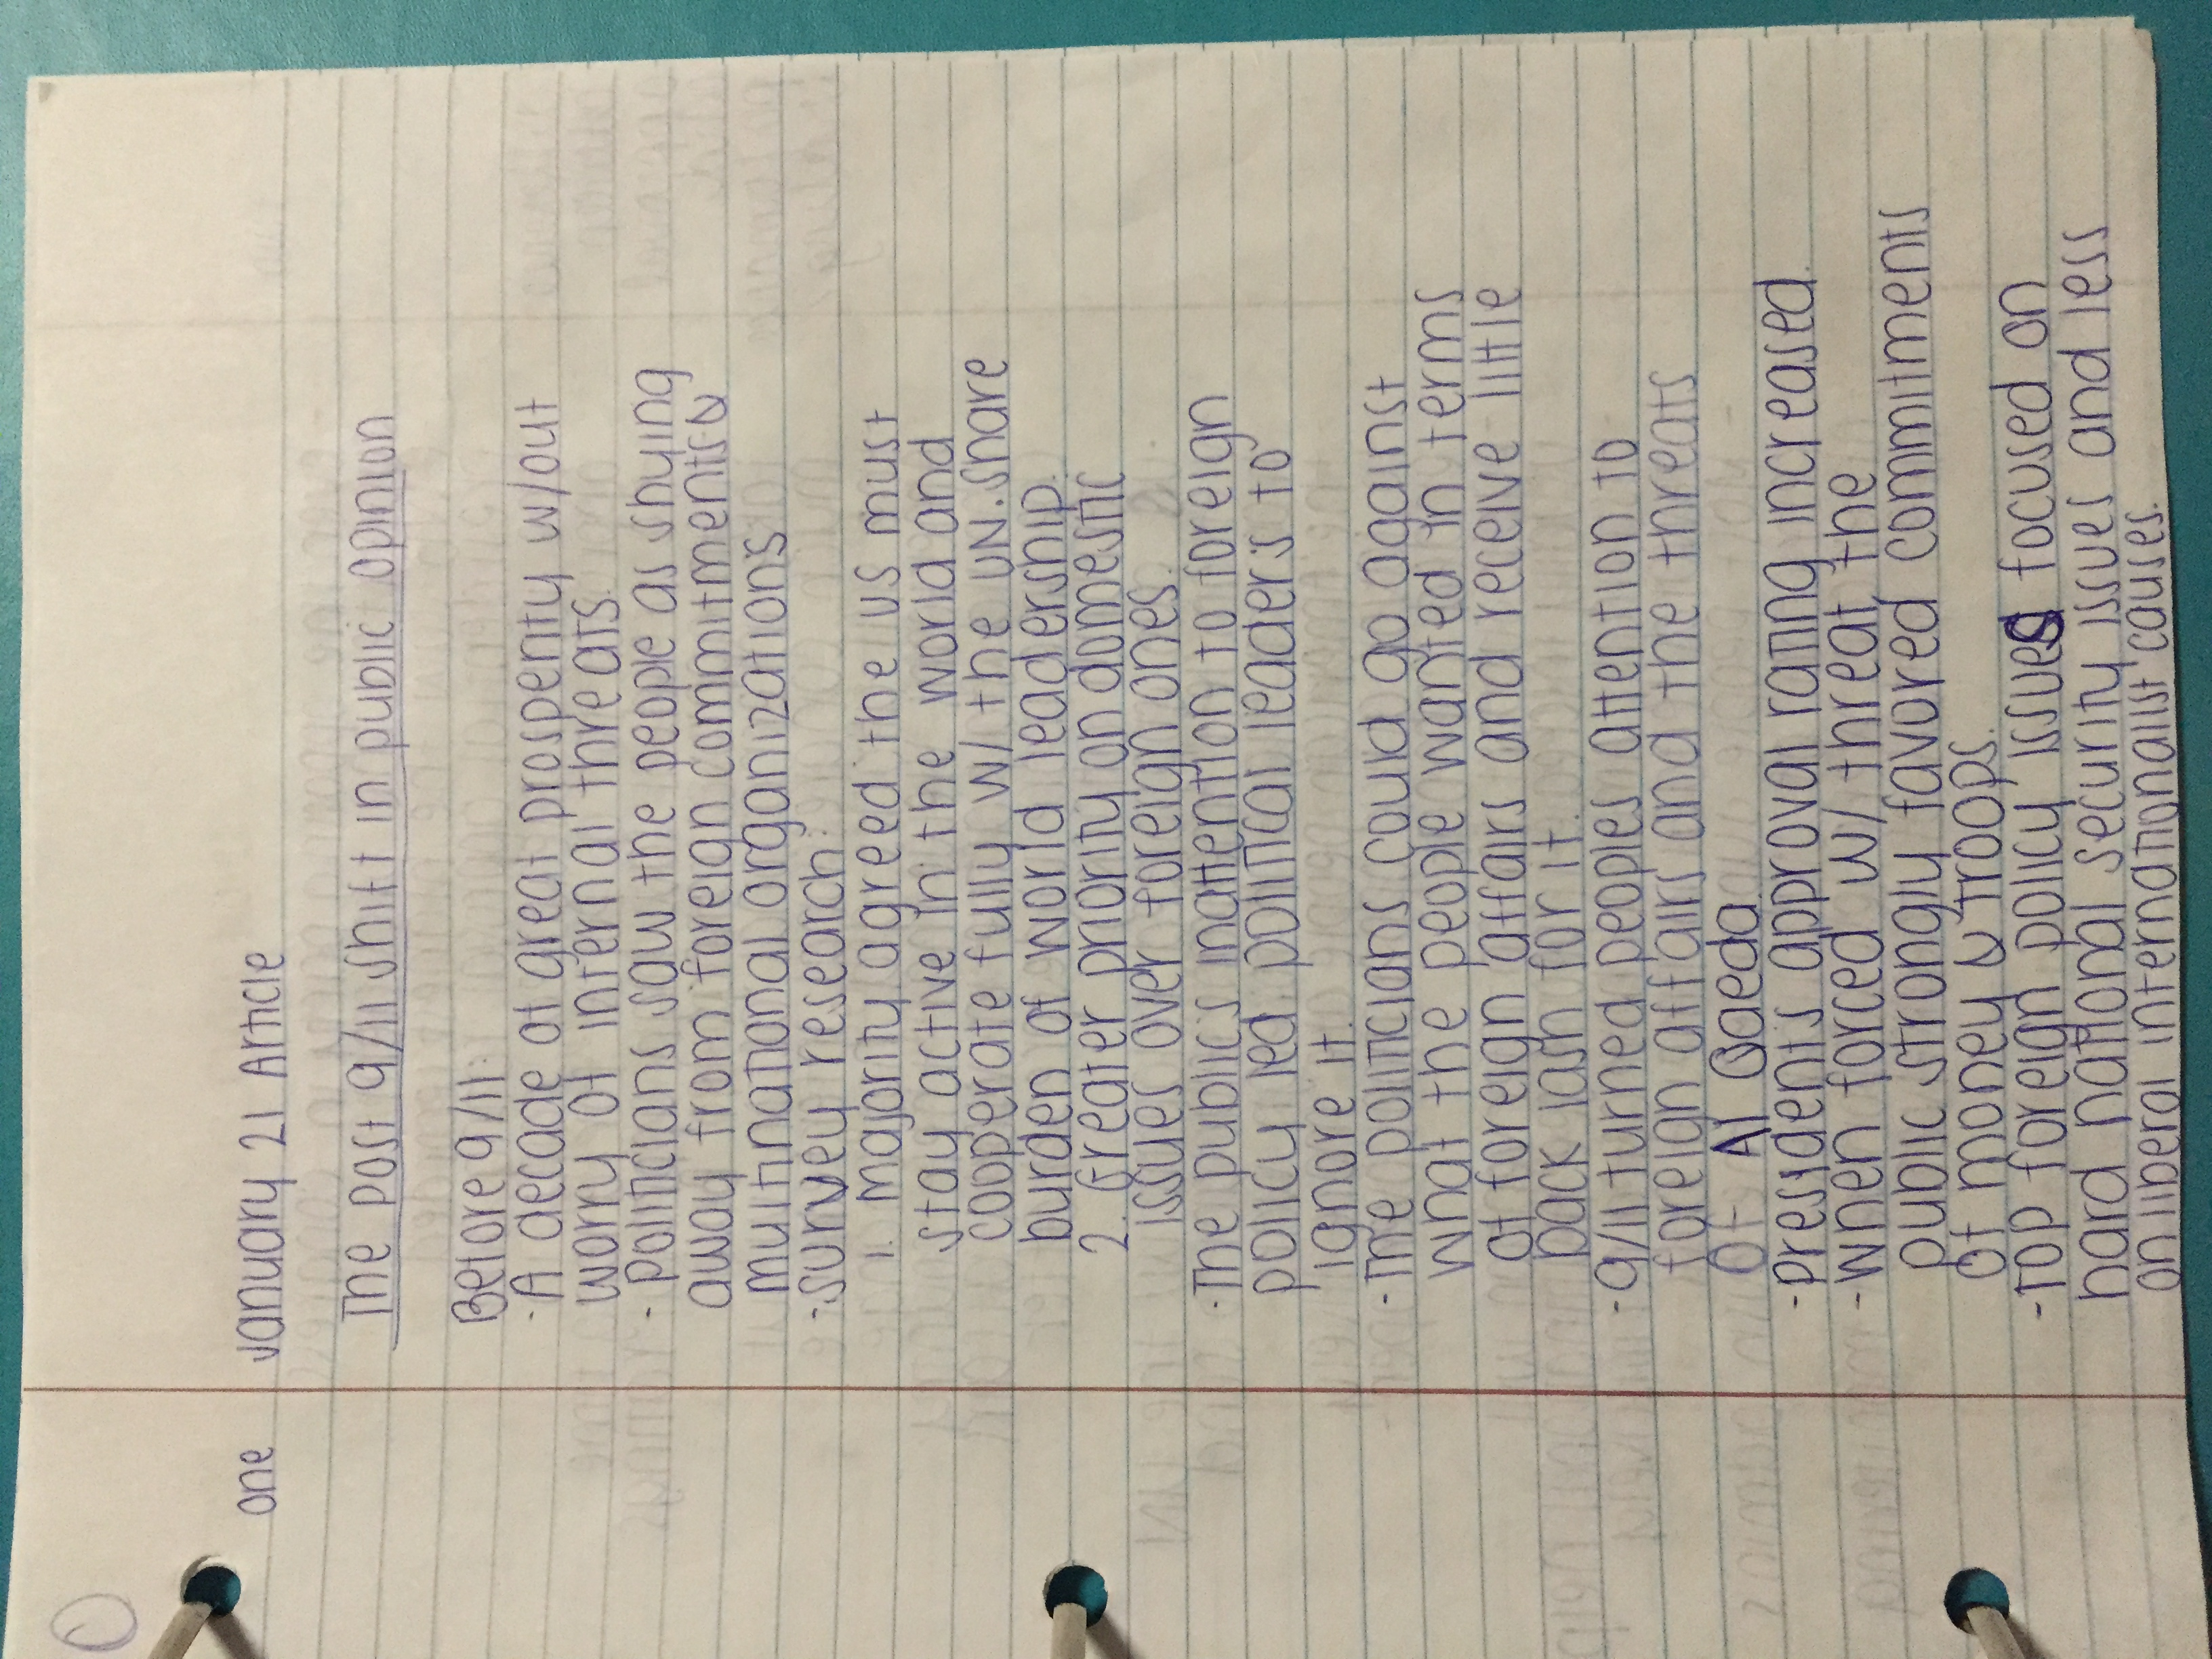 one January 21 Article
The post 9/11 shift in public opinion
Before 9/11:
- A decade of great prosperity w/out
worry of internal threats.
- politicians saw the people as shying
away from foreign commitments &
multinational organizations
- survey research:
1. majority agreed the us must
stay active in the world and
cooperate fully w/ the UN. share
burden of world leadership.
2. Greater priority on domestic
issues over foreign ones.
- The publics inattention to foreign
policy led political leaders to
ignore it.
- The politicians could go against
what the people wanted in terms
of foreign affairs and receive little
back lash for it.
- 9/11 turned peoples attention to
foreign affairs and the threats
of Al Qaeda.
- president's approval rating increased.
- when forced w/ threat the
public strongly favored commitments
of money & troops.
- Top foreign policy issues focused on
hard national security issues and less
on liberal internationalist causes.